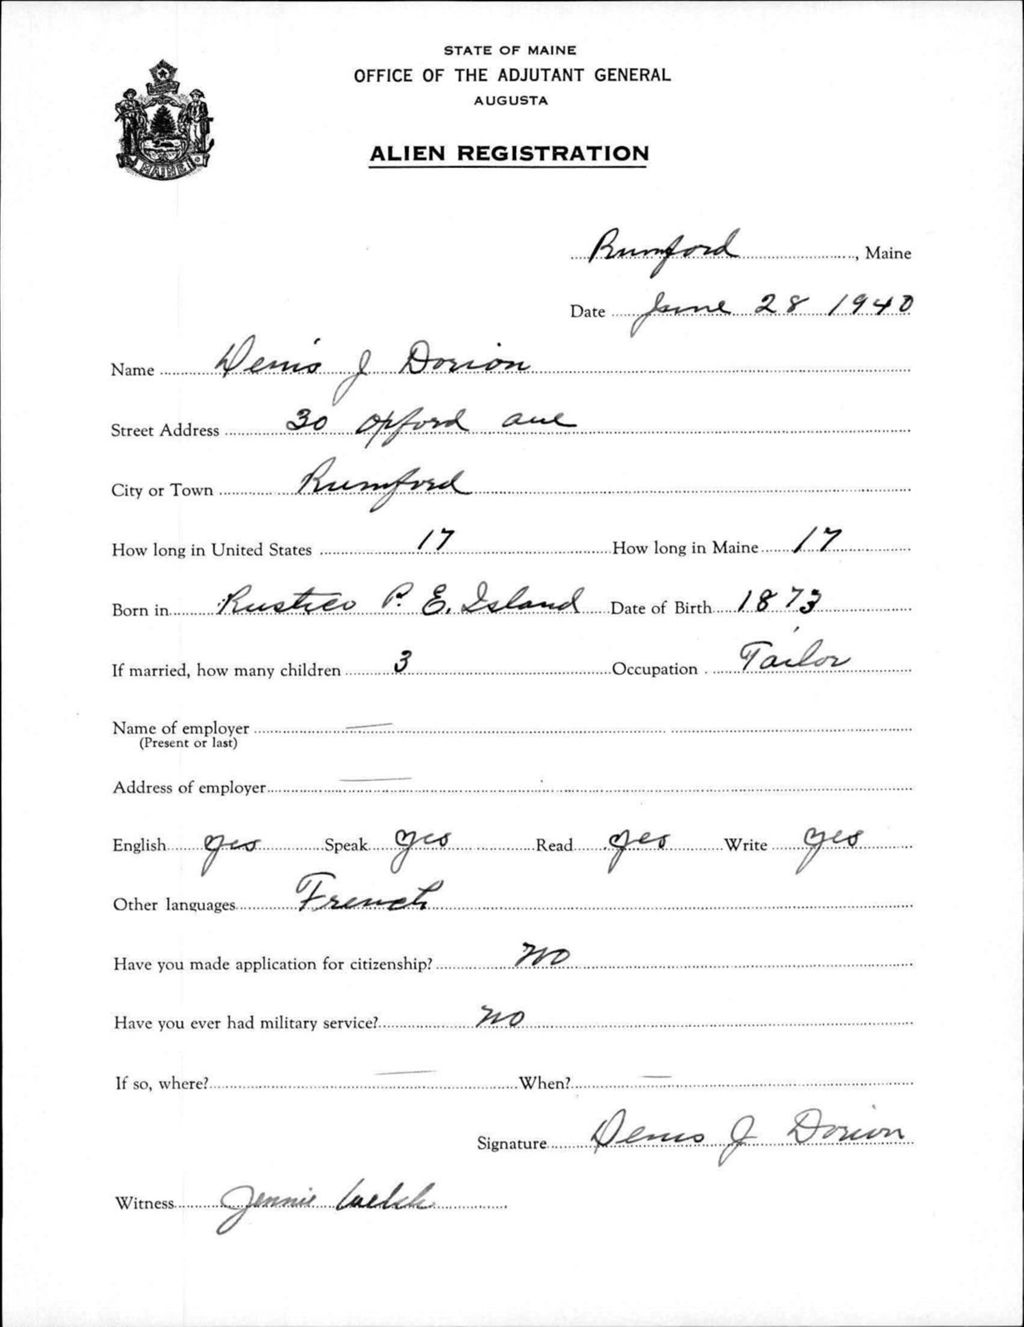 STATE OF MAINE
OFFICE OF THE ADJUTANT GENERAL
AUGUSTA
ALIEN REGISTRATION
MAINE
Rumford, Maine
Date June 28 1940
Name Denis J Dorion
Street Address 30 Oxford ave
City or Town Rumford
How long in United States 17 How long in Maine 17
Born in Rustico P. E. Island Date of Birth 1873
If married, how many children 3 Occupation Tailor
Name of employer
(Present or last)
Address of employer
English yes Speak yes Read yes Write yes
Other languages French
Have you made application for citizenship? no
Have you ever had military service? no
If so, where? When?
Signature Denis J Dorion
Witness Jennie Welch